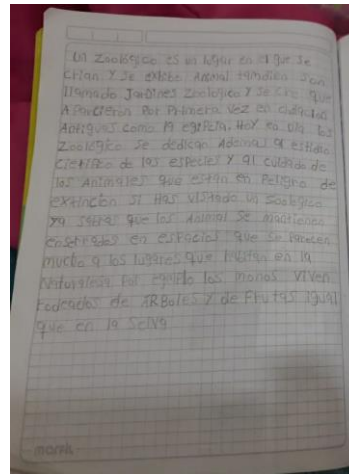 Un Zoológico es un lugar en el que se
crian y se exibe Animal tambien son
llamado Jardines Zoologico y se cre que
Aparcieron Por Primera vez en ciudades
Antiguas como la egipcia, Hoy en dia los
Zoológico se dedican Ademas al estidio
cietifico de las especies y al cuidado de
los Animales que están en Peligro de
extincion si Has visitado un zoologico
ya sabras que los Animal se mantienen
enserados en espacios que se parecen
mucho a los lugares que habitan en la
Naturaleza. Por ejemplo los monos viven
rodeados de ARBoles y de Frutas igual
que en la Selva